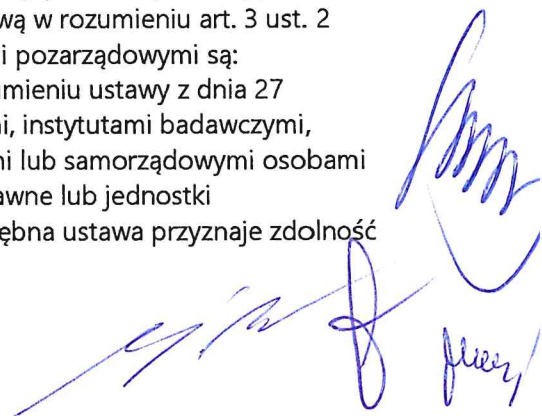 wą w rozumieniu art. 3 ust. 2
i pozarządowymi są:
umieniu ustawy z dnia 27
ni, instytutami badawczymi,
ni lub samorządowymi osobami
awne lub jednostki
ębna ustawa przyznaje zdolność